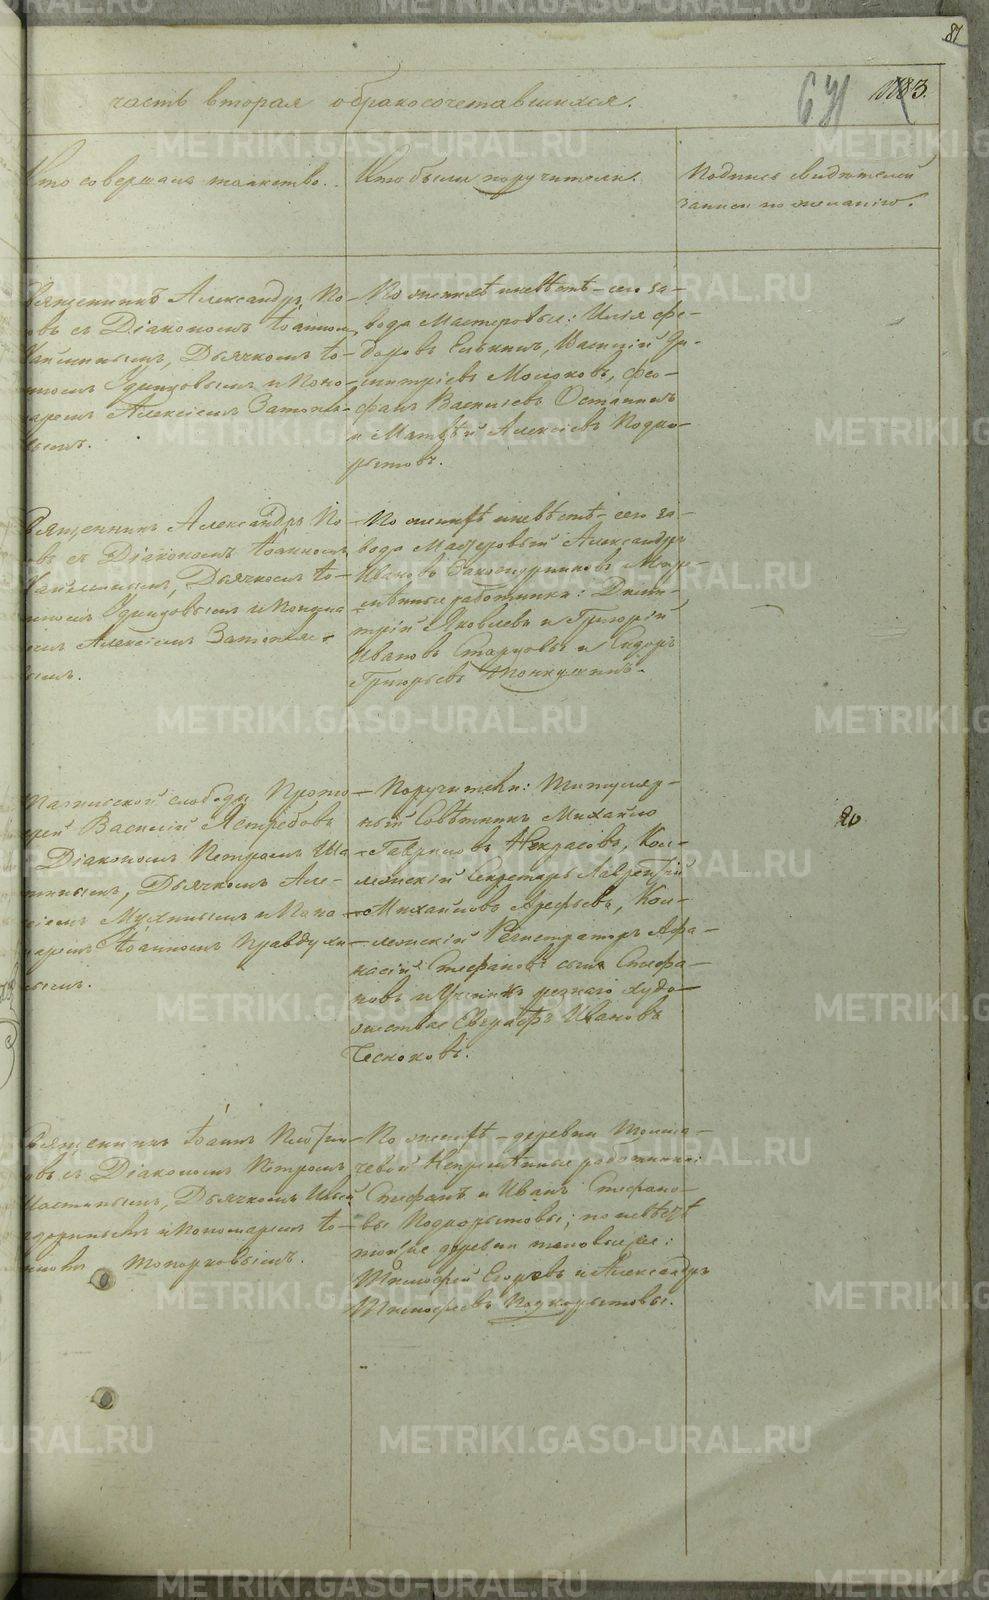 87
часть вторая о бракосочетавшихся.
671 1183.
Кто совершалъ таинство.
Кто были поручители.
Подпись свидѣтелей
записи по желанію.
вященникъ Александръ По-
овъ съ Діакономъ Іоанном
Дьячкомъ Іо-
нномъ Одинцовымъ и Поно-
аремъ Алексіемъ Затопля-
вымъ.
По женихѣ и невѣстѣ - сего за-
вода Мастеровые: Илья Фе-
доровъ Василій Ди-
митріевъ Молоковъ, Фео-
фанъ Васильевъ Останинъ
и Матвѣй Алексіевъ Подко-
рытовъ.
вященникъ Александръ По-
овъ съ Діакономъ Іоанном
Дьячкомъ Іо-
нномъ Одинцовымъ и Понома
емъ Алексіемъ Затопляе-
вымъ.
По женихѣ и невѣстѣ - сего за-
вода Мастеровый Александръ
Ивановъ Непре-
мѣнные работники: Дими-
трій Яковлевъ и Григорій
Ивановъ Старцовы и Сидоръ
Григорьевъ Тонкушинъ.
слободы Прото
ерей Василій Ястребовъ
Діакономъ Петромъ Ша
Дьячкомъ Але-
сіемъ Мухинымъ и Поно
аремъ Іоанномъ Правдухи
нымъ.
Поручители: Титуляр-
ный Совѣтникъ Михаило
Гавриловъ Некрасовъ, Кол-
лежскій Секретарь Лаврентій
Михайловъ Арефьевъ, Кол-
лежскій Регистраторъ Афа-
насій Стефановъ сынъ Стефа-
новъ и Ученикъ рѣзнаго худо-
жества Евграфъ Ивановъ
Чесноковъ.
20
вященникъ Іоаннъ Плотни
овъ съ Діакономъ Петромъ
Дьячкомъ
и Пономаремъ Іо-
Топорковымъ.
По женихѣ - деревни Толма-
чевой Непремѣнные работники:
Стефанъ и Иванъ Стефано-
вы Подкорытовы; по невѣстѣ
той же деревни таковые же:
Тимофей Егоровъ и Александръ
Тимофеевъ Подкорытовы.
METRIKI.GASO-URAL.RU